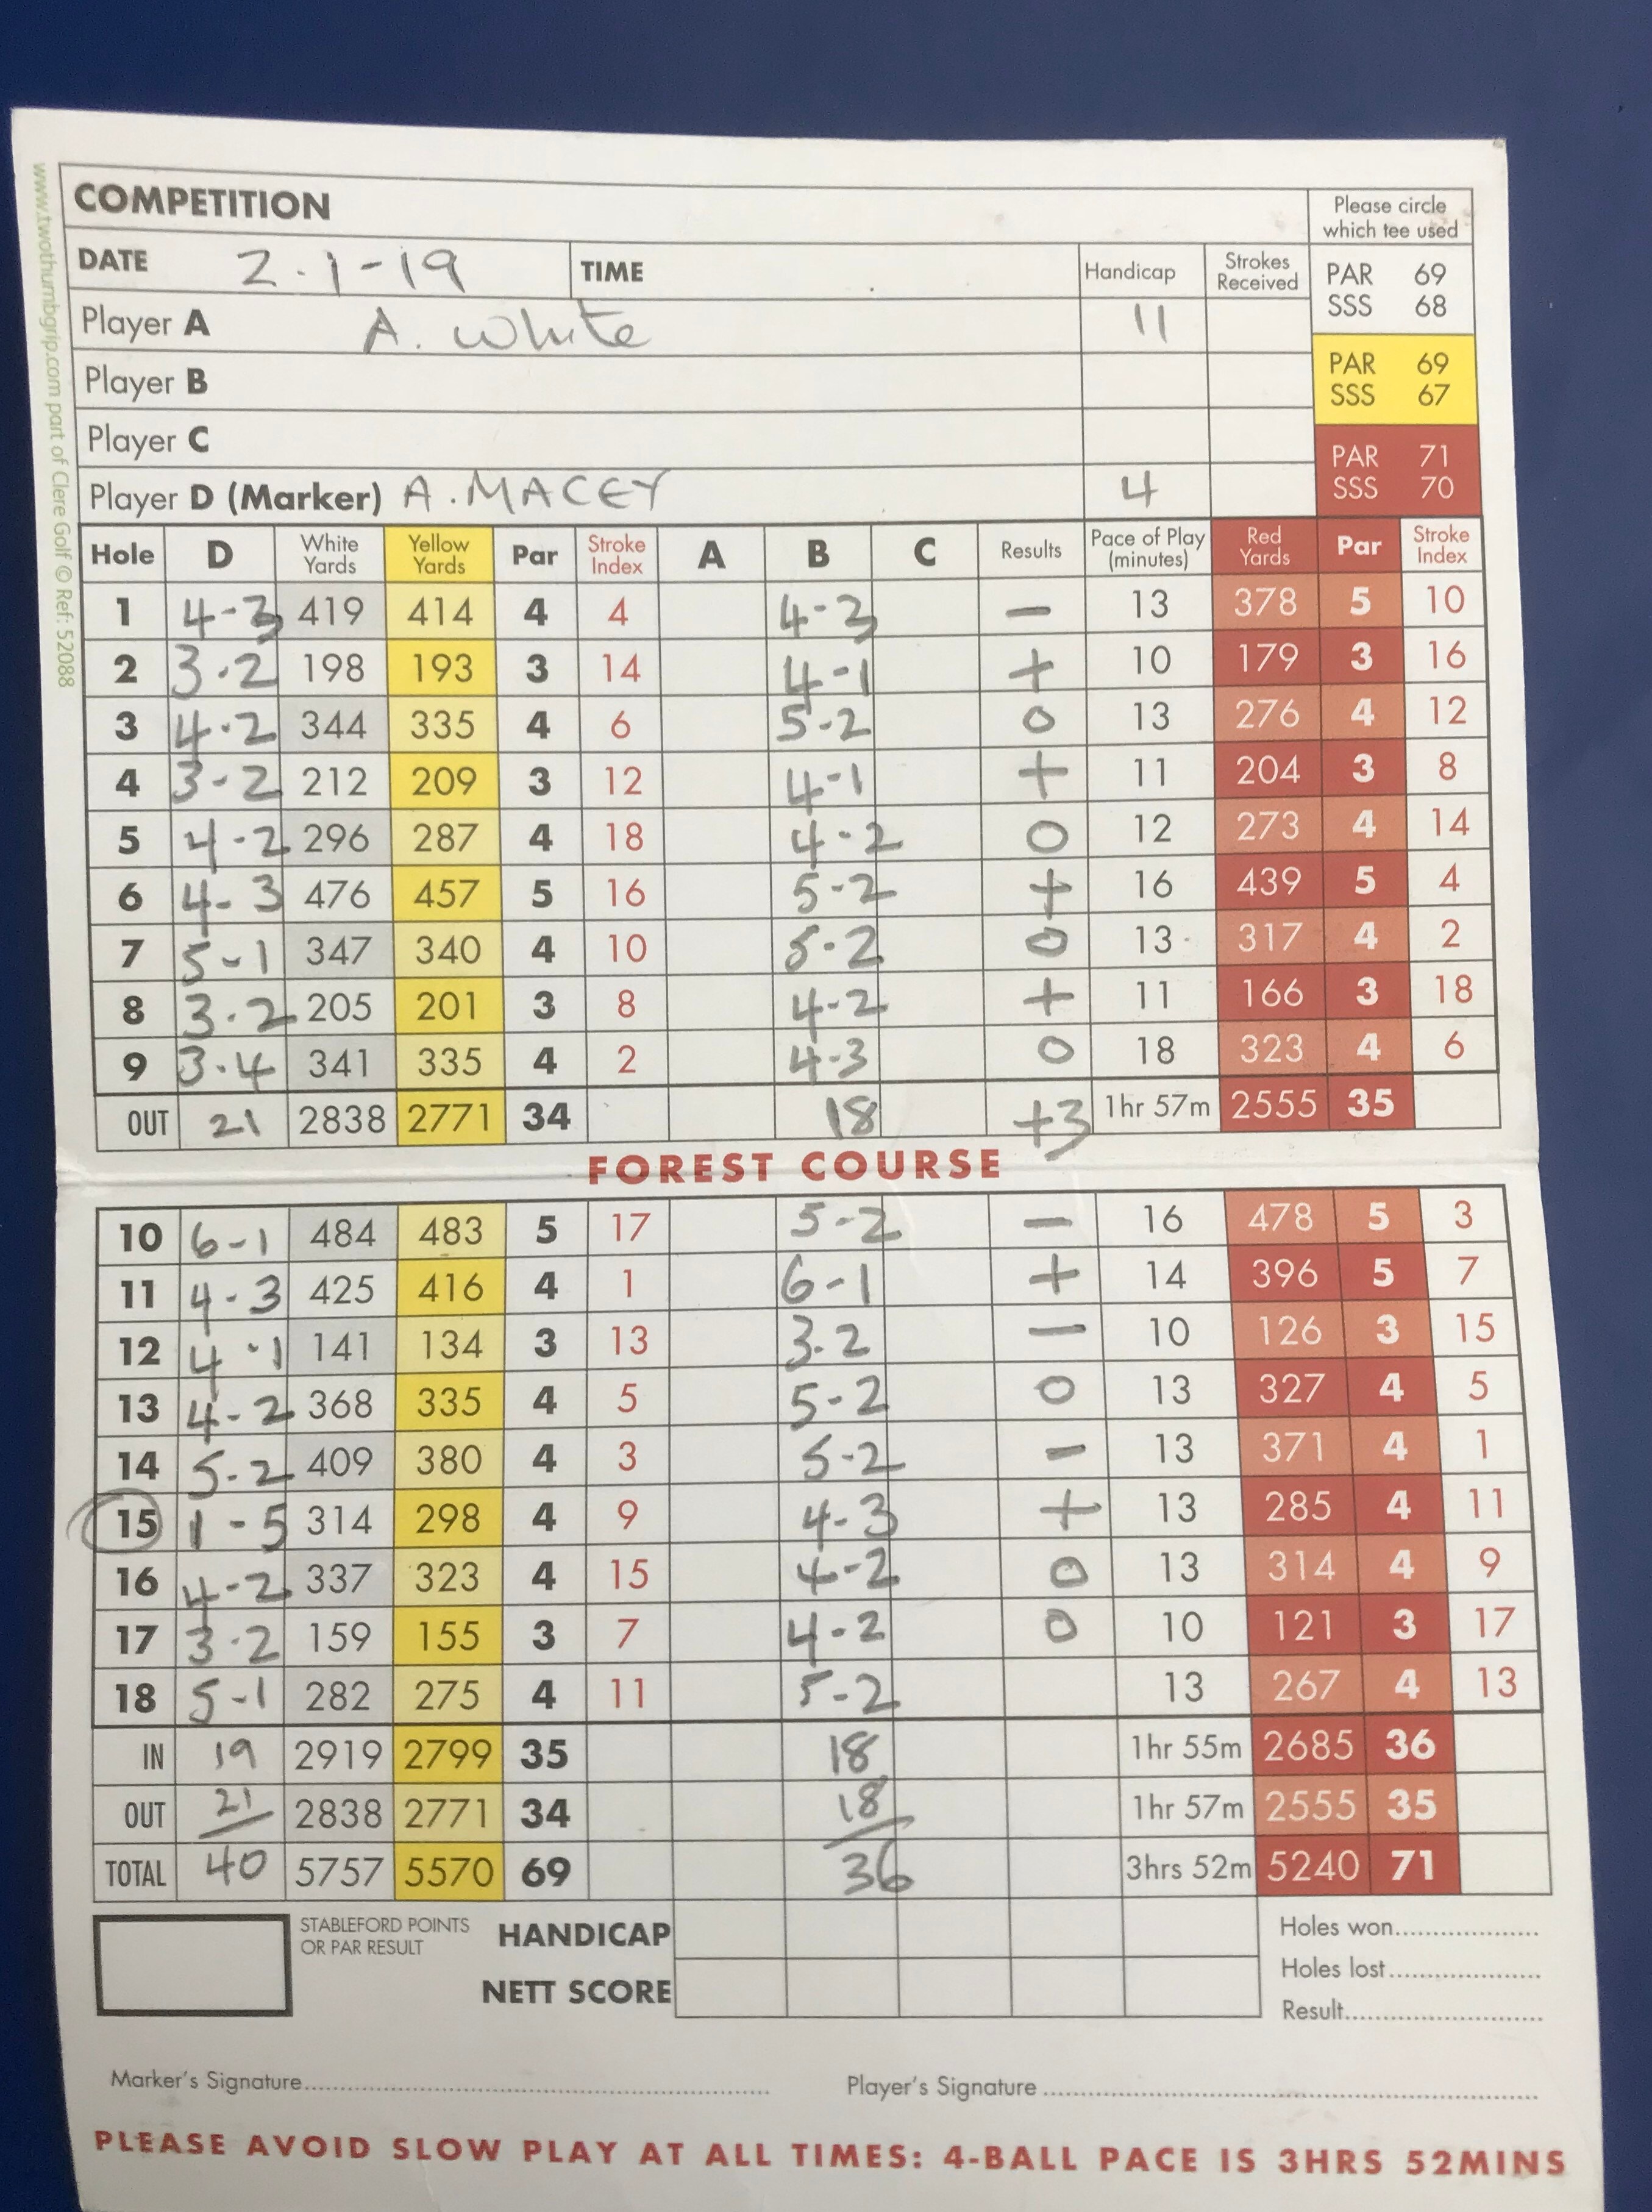 COMPETITION
Please circle
which tee used
DATE 2-1-19 TIME Handicap Strokes Received PAR 69 SSS 68
Player A A. White 11
Player B PAR 69 SSS 67
Player C
Player D (Marker) A. MACEY 4 PAR 71 SSS 70
Hole D White Yards Yellow Yards Par Stroke Index A B C Results Pace of Play (minutes) Red Yards Par Stroke Index
1 4-3 419 414 4 4 4-3 − 13 378 5 10
2 3-2 198 193 3 14 4-1 + 10 179 3 16
3 4-2 344 335 4 6 5-2 0 13 276 4 12
4 3-2 212 209 3 12 4-1 + 11 204 3 8
5 4-2 296 287 4 18 4-2 0 12 273 4 14
6 4-3 476 457 5 16 5-2 + 16 439 5 4
7 5-1 347 340 4 10 5-2 0 13 317 4 2
8 3-2 205 201 3 8 4-2 + 11 166 3 18
9 3-4 341 335 4 2 4-3 0 18 323 4 6
OUT 21 2838 2771 34 18 +3 1hr 57m 2555 35
FOREST COURSE
10 6-1 484 483 5 17 5-2 − 16 478 5 3
11 4-3 425 416 4 1 6-1 + 14 396 5 7
12 4-1 141 134 3 13 3-2 − 10 126 3 15
13 4-2 368 335 4 5 5-2 0 13 327 4 5
14 5-2 409 380 4 3 5-2 − 13 371 4 1
15 1-5 314 298 4 9 4-3 + 13 285 4 11
16 4-2 337 323 4 15 4-2 0 13 314 4 9
17 3-2 159 155 3 7 4-2 0 10 121 3 17
18 5-1 282 275 4 11 5-2 13 267 4 13
IN 19 2919 2799 35 18 1hr 55m 2685 36
OUT 21 2838 2771 34 18 1hr 57m 2555 35
TOTAL 40 5757 5570 69 36 3hrs 52m 5240 71
STABLEFORD POINTS
OR PAR RESULT
HANDICAP
NETT SCORE
Holes won
Holes lost
Result
Marker's Signature
Player's Signature
PLEASE AVOID SLOW PLAY AT ALL TIMES: 4-BALL PACE IS 3HRS 52MINS
www.twothumbgrip.com part of Clere Golf © Ref: 52088